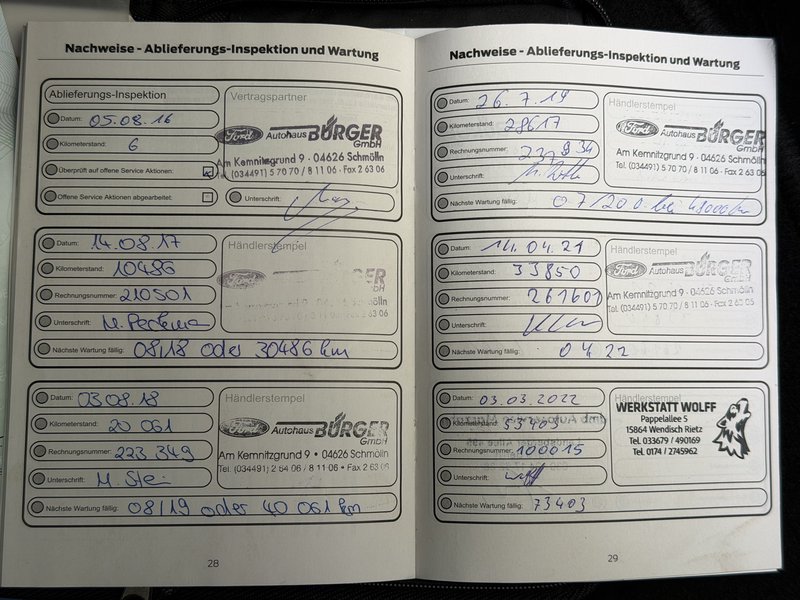 Nachweise - Ablieferungs-Inspektion und Wartung
Ablieferungs-Inspektion
Datum: 05.08.16
Kilometerstand: 6
Überprüft auf offene Service Aktionen:
Offene Service Aktionen abgearbeitet:
Vertragspartner
Ford Autohaus BÜRGER
GmbH
Am Kemnitzgrund 9 · 04626 Schmölln
Tel. (034491) 5 70 70 / 8 11 06 · Fax 2 63 06
Unterschrift:
Datum: 14.08.17
Kilometerstand: 10486
Rechnungsnummer: 210501
Unterschrift:
Nächste Wartung fällig: 08/18 oder 30486 km
Händlerstempel
Ford BÜRGER
GmbH
Datum: 03.08.18
Kilometerstand: 20 061
Rechnungsnummer: 223 349
Unterschrift:
Nächste Wartung fällig: 08/19 oder 40 061 km
Händlerstempel
Ford Autohaus BÜRGER
GmbH
Am Kemnitzgrund 9 • 04626 Schmölln
Tel. (034491) 2 64 06 / 8 11 06 • Fax 2 63 06
28
Nachweise - Ablieferungs-Inspektion und Wartung
Datum: 26.7.19
Kilometerstand: 28617
Rechnungsnummer:
Unterschrift:
Nächste Wartung fällig:
Händlerstempel
Ford Autohaus BÜRGER
GmbH
Am Kemnitzgrund 9 · 04626 Schmölln
Tel. (034491) 5 70 70 / 8 11 06 · Fax 2 63 06
Datum: 14.04.21
Kilometerstand: 33850
Rechnungsnummer: 261601
Unterschrift:
Nächste Wartung fällig: 04 22
Händlerstempel
Ford Autohaus BÜRGER
GmbH
Am Kemnitzgrund 9 · 04626 Schmölln
Tel. (034491) 5 70 70 / 8 11 06 · Fax 2 63 06
Datum: 03.03.2022
Kilometerstand: 53403
Rechnungsnummer: 100015
Unterschrift:
Nächste Wartung fällig: 73403
Händlerstempel
WERKSTATT WOLFF
Pappelallee 5
15864 Wendisch Rietz
Tel. 033679 / 490169
Tel. 0174 / 2745962
29